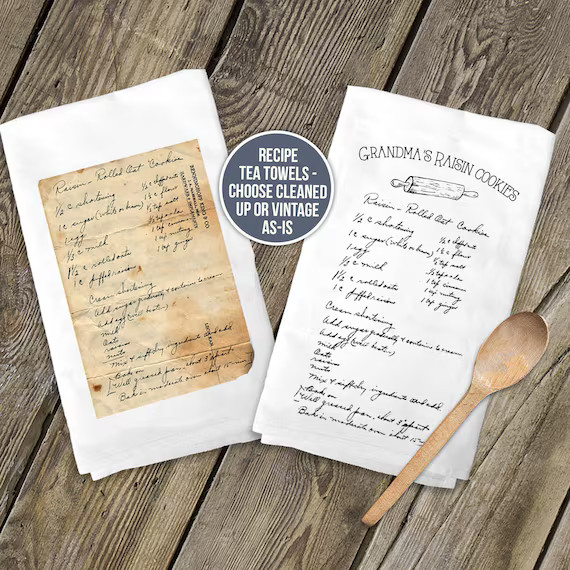 Raisin - Rolled Oat Cookies
½ c shortening
1 c sugar (white or brown)
1 egg
½ c milk
1½ c rolled oats
1 c puffed raisins
1½ c flour
½ tsp salt
1 tsp nutmeg
1 tsp ginger
Cream shortening
Add sugar gradually & continue to cream
Add egg
milk
Oats
raisins
nuts
Mix & sift dry ingredients and add
Drop on
Well greased pan, about 3" apart
Bake in moderate oven about 15
RECIPE
TEA TOWELS -
CHOOSE CLEANED
UP OR VINTAGE
AS-IS
GRANDMA'S RAISIN COOKIES
Raisin - Rolled Oat Cookies
½ c shortening
1 c sugar (white or brown)
1 egg
½ c milk
1½ c rolled oats
1 c puffed raisins
1½ c flour
½ tsp salt
1 tsp nutmeg
1 tsp ginger
Cream shortening
Add sugar gradually & continue to cream
Add egg
milk
Oats
raisins
nuts
Mix & sift dry ingredients and add
Drop on
Well greased pan, about 3" apart
Bake in moderate oven about 15